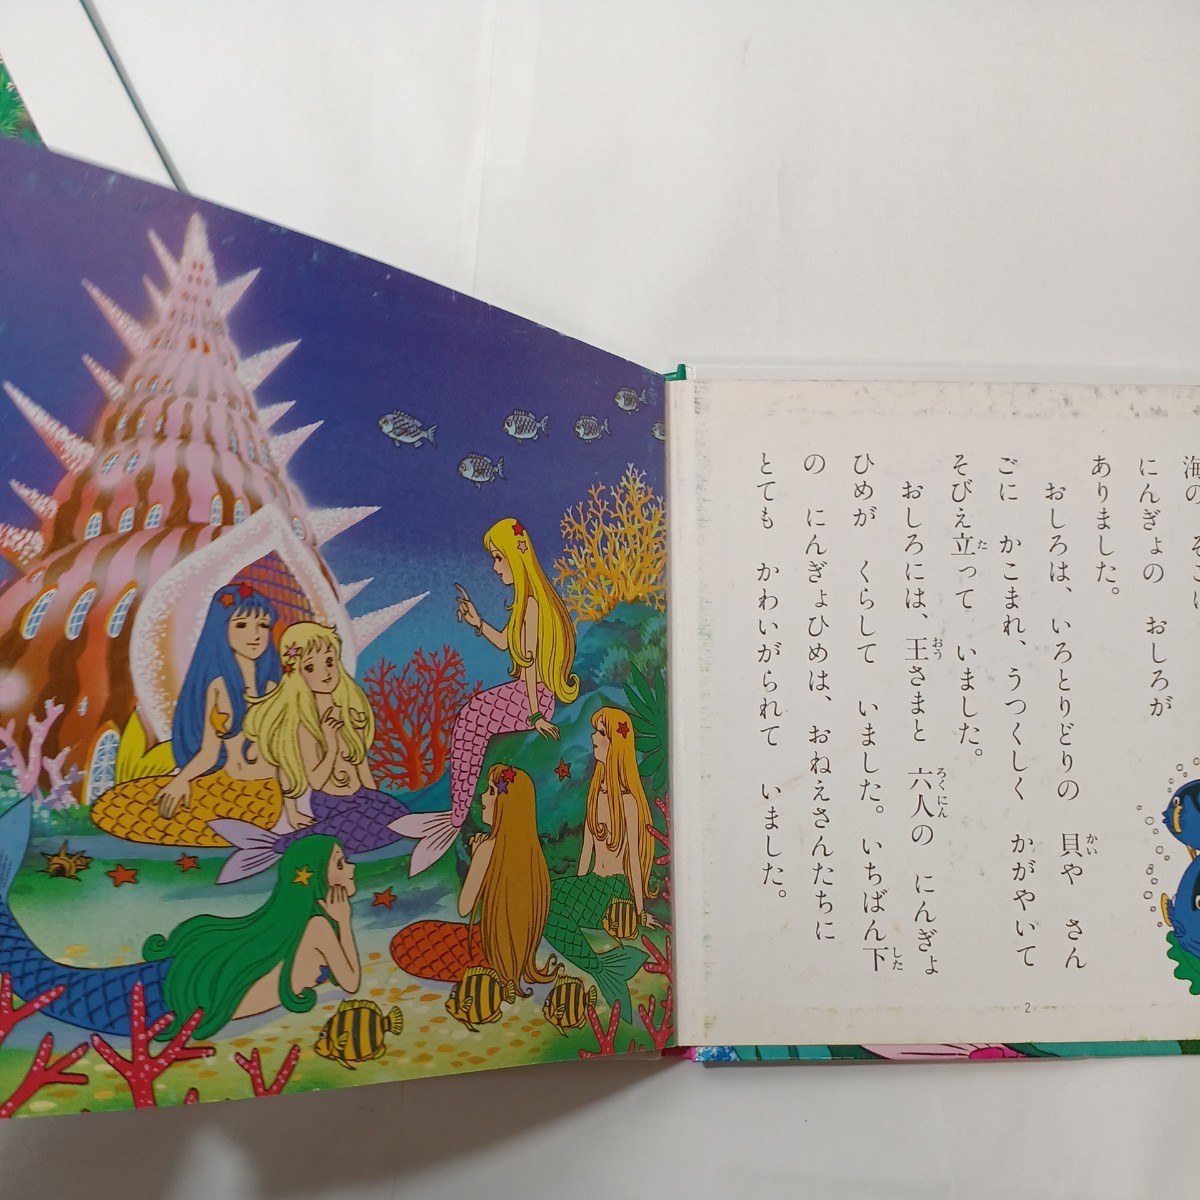 海の そこに
にんぎょの おしろが
ありました。
おしろは、いろとりどりの 貝や さん
ごに かこまれ、うつくしく かがやいて
そびえ立って いました。
おしろには、王さまと 六人の にんぎょ
ひめが くらして いました。いちばん下
の にんぎょひめは、おねえさんたちに
とても かわいがられて いました。
かい
た
おう
ろくにん
した
2